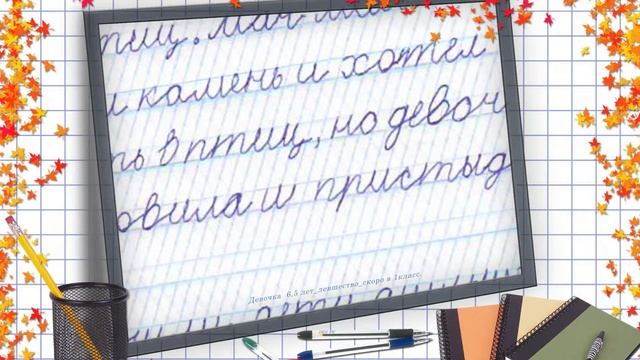 птиц. Мальчик
л камень и хотел
ть в птиц, но девоч
овила и пристыд
Девочка 6,5 лет_левшество_скоро в 1класс.